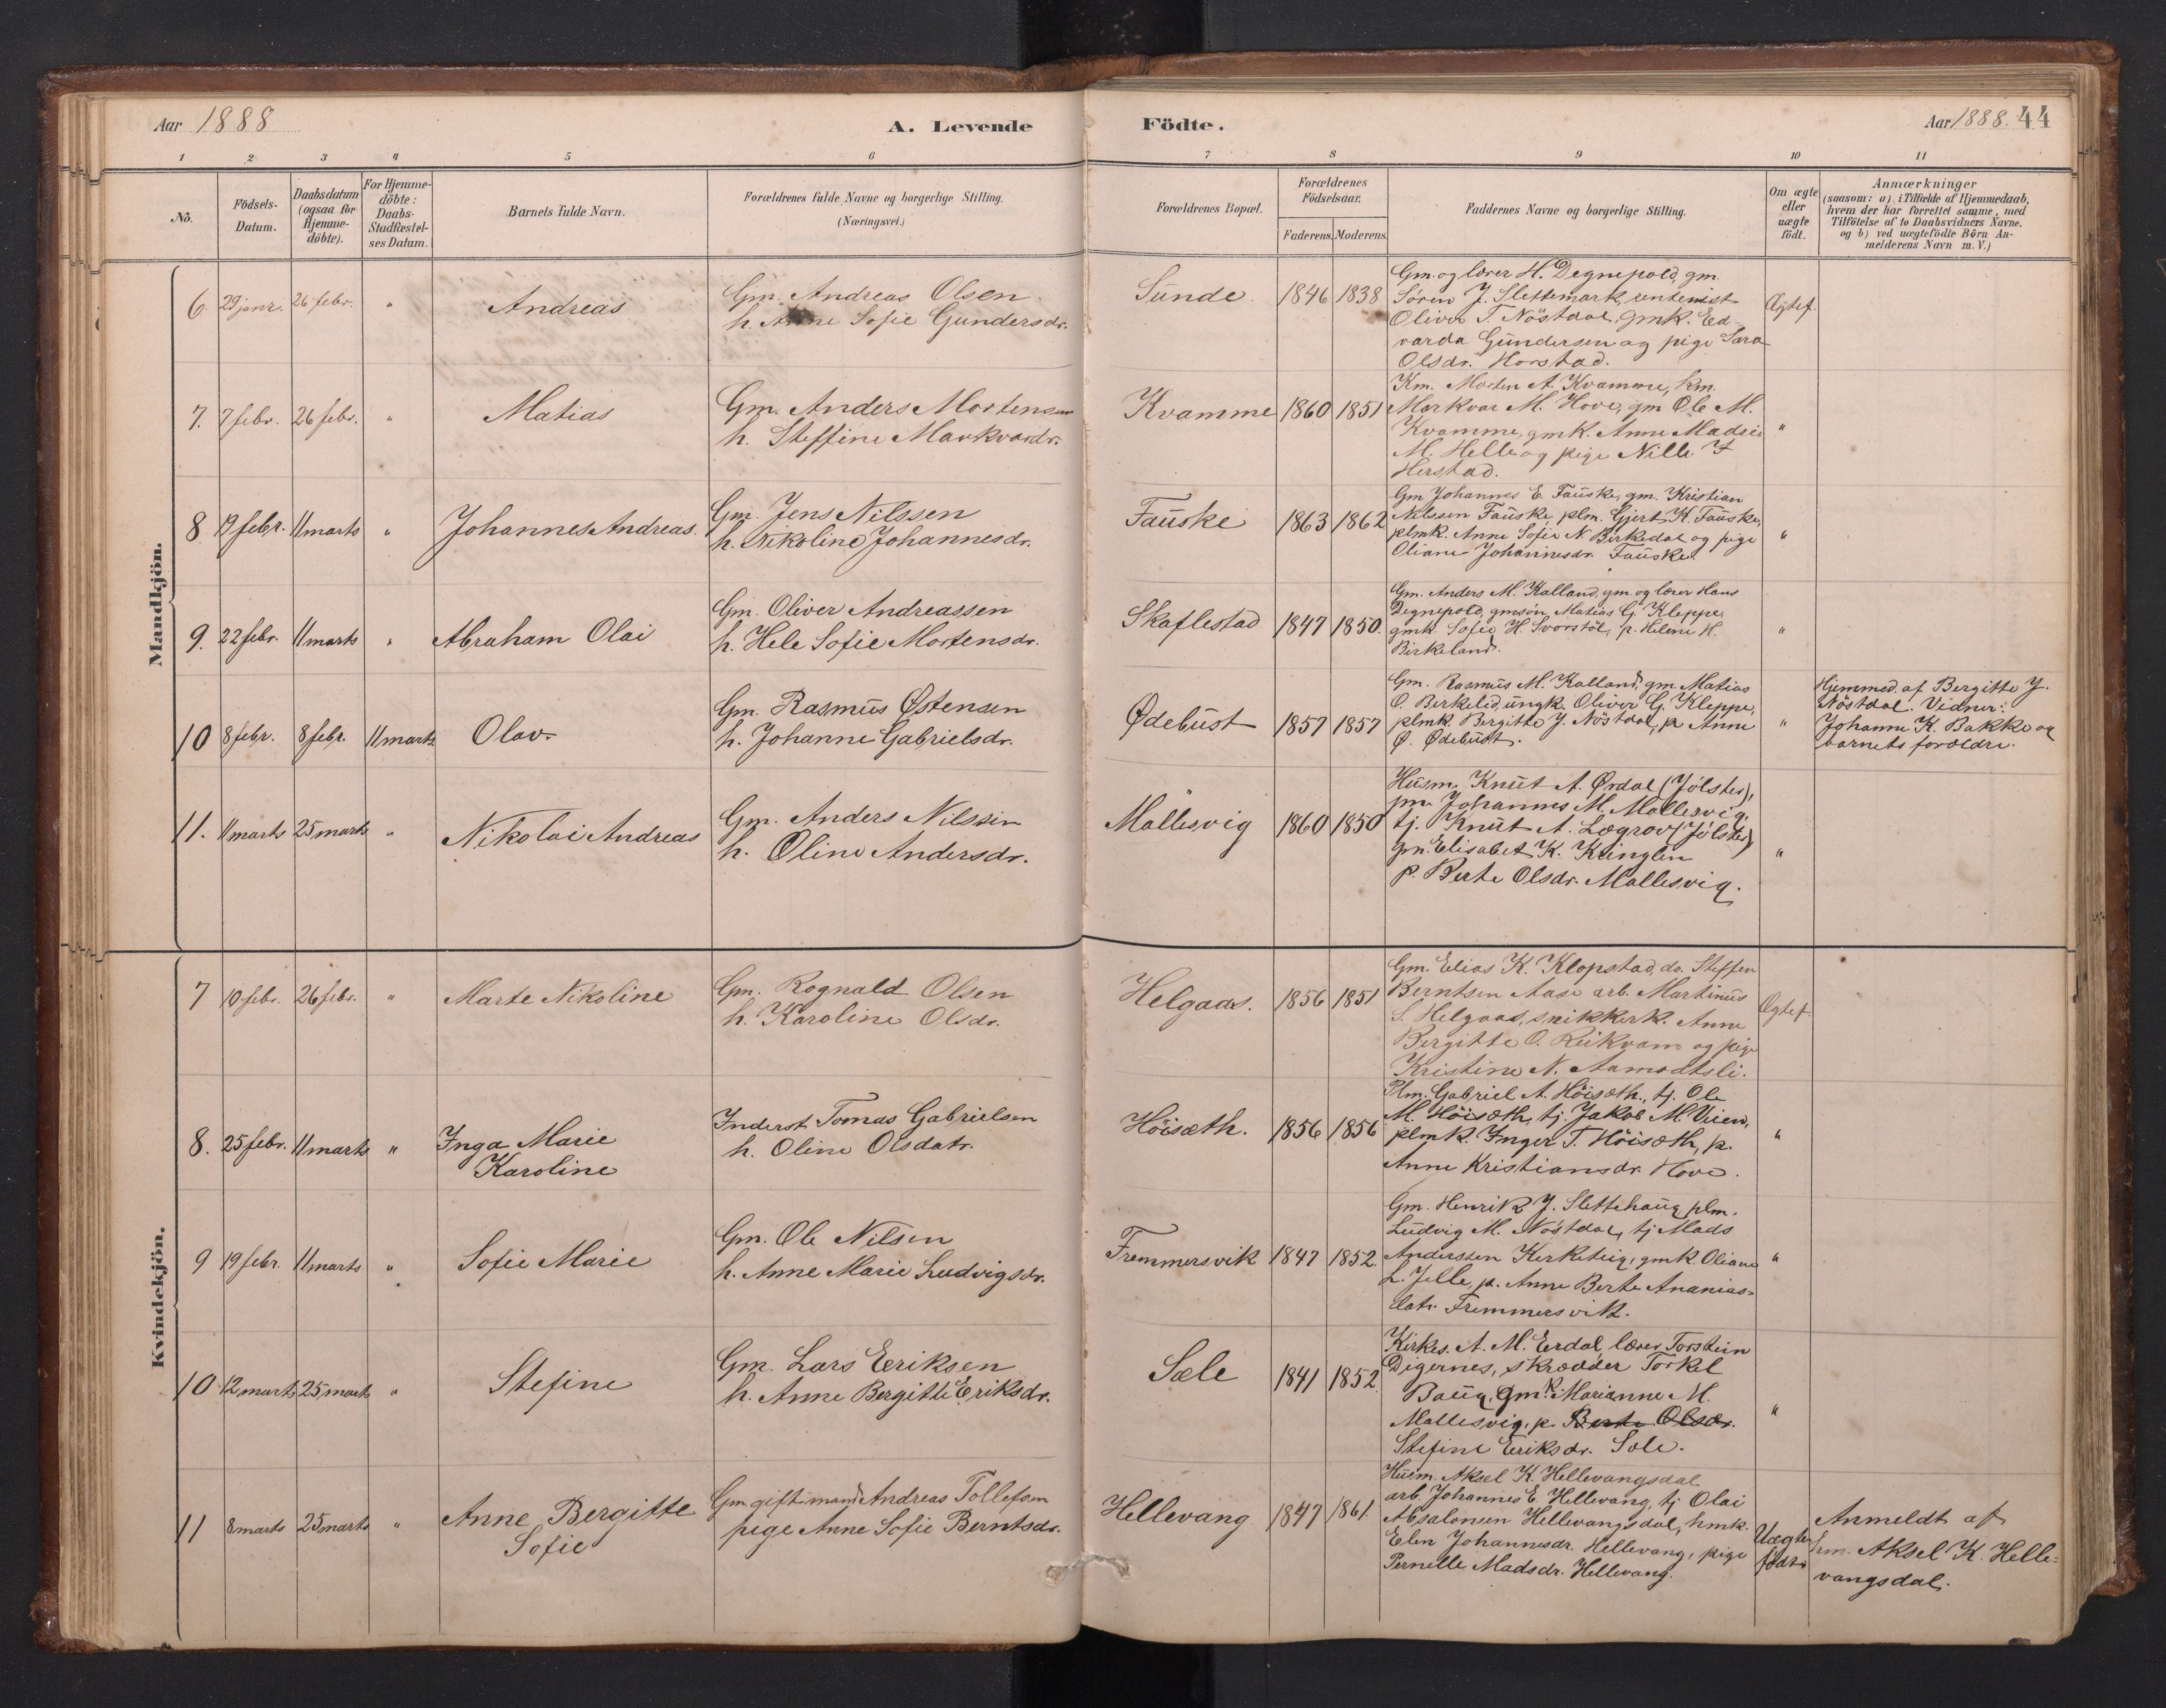 Aar 1888
A. Levende
Födte.
Aar 1888. 44
1 2 3 4 5 6 7 8 9 10 11
No.
Födsels-
Datum.
Daabsdatum
(ogsaa for
Hjemme-
döbte).
For Hjemme-
döbte:
Daabs-
Stadfæstel-
ses Datum.
Barnets fulde Navn.
Forældrenes fulde Navne og borgerlige Stilling.
(Næringsvei.)
Forældrenes Bopæl.
Forældrenes
Födselsaar.
Faderens. Moderens.
Faddernes Navne og borgerlige Stilling.
Om ægte
eller
uægte
födt.
Anmærkninger
(saasom: a) i Tilfælde af Hjemmedaab,
hvem der har forrettet samme, med
Tilföielse af to Daabsvidners Navne.
og b) ved uægtefödte Börn An-
melderens Navn m.V.)
Mandkjön.
6. 29 janr. 26 febr. "
Andreas
Gm. Andreas Olsen
h. Anne Sofie Gundersdr.
Sunde. 1846 1838
Gm. og lærer H. Degnepold, gm.
Søren J. Slettemark,
Oliver T. Nöstdal, gmk. Ed-
varda Gundersen og pige Sara
Olsdr. Horstad.
Ægtef.
7. 7 febr. 26 febr. "
Matias
Gm. Anders Mortensen
h. Steffine Markvardr.
Kvamme 1860 1851
Km. Morten A. Kvamme, km.
Markvar M. Hove, gm Ole M.
Kvamme, gmk. Anne Madsis
M. Helle og pige Nille I
Herstad.
"
8 19 febr. 11 marts "
Johannes Andreas.
Gm. Jens Nilssen
h. Nikoline Johannesdr.
Fauske 1863 1862
Gm Johannes E. Fauske, gm. Kristian
Nilssen Fauske, plm. Gjert K. Fauske,
plmk. Anne Sofie N. Birkedal og pige
Oliane Johannesdr. Fauske.
"
9. 22 febr. 11 marts "
Abraham Olai
Gm. Oliver Andreassen
h. Hele Sofie Mortensdr.
Skaflestad 1847 1850.
Gm. Anders M. Kalland, gm. og lærer Hans
Degnepold, gmsøn Matias G. Kleppe,
gmk. Sofie H. Svorstöl, p. Helene H.
Birkeland.
"
10 8 febr. 8 febr. 11 marts
Olav.
Gm. Rasmus Østensen
h. Johanne Gabrielsdr.
Ødebust 1857 1857
Gm. Rasmus M. Kalland, gm. Matias
O. Birkelid, ungk. Oliver G. Kleppe,
plmk. Bergitte J. Nöstdal, p. Anne
Ø. Ødebust.
"
Hjemmed. af Bergitte J.
Nöstdal. Vidner:
Johanne K. Bakke og
barnets forældre.
11. 11 marts 25 marts "
Nikolai Andreas
Gm. Anders Nilssen
h. Oline Andersdr.
Mallesvig 1860 1850
Husm. Knut A. Ørdal (Jölster),
pm. Johannes M. Mallesvig,
tj. Knut A. Lægrov (Jölster)
gm. Elisabet K. Kringlen
p. Berte Olsdr. Mallesvig.
"
Kvindekjön.
7 10 febr. 26 febr. "
Marte Nikoline
Gm. Rognald Olsen
h. Karoline Olsdr.
Helgaas. 1856 1851
Gm. Elias K. Klopstad, do. Steffen
Berntsen Aase arb. Martinus
S. Helgaas, snikkerk. Anne
Bergitte O. Reikvam og pige
Kristine N. Aamodtsli.
Ægtef.
8. 25 febr. 11 marts "
Inga Marie
Karoline
Inderst. Tomas Gabrielsen
h. Oline Olsdatr.
Höisæth. 1856 1856
Plm. Gabriel A. Höisæth, tj. Ole
M. Höisæth, tj. Jakob M. Vien,
plmk. Inger T. Höisæth, p.
Anne Kristiansdr. Hove.
"
9 19 febr. 11 marts "
Sofie Marie
Gm. Ole Nilsen
h. Anne Marie Ludvigsdr.
Fremmersvik 1847 1852.
Gm. Henrik J. Slettehaug plm.
Ludvig M. Nöstdal, tj Mads
Anderssen Kirketeig, gmk. Oliane
L. Jelle, p. Anne Berte Ananias-
datr Fremmersvik.
"
10 12 marts 25 marts "
Stefine
Gm. Lars Eriksen
h. Anne Bergitte Eriksdr.
Sæle 1841 1852.
Kirkes. A. M. Erdal, lærer Torstein
Digernes, skrædder Torkel
Baug, gmk. Marianne M.
Mallesvig, p. Berte Olsdr.
Stefine Eriksdr. Sæle.
"
11 8 marts 25 marts "
Anne Bergitte
Sofie
Gm. gift mand Andreas Tollefsen
pige Anne Sofie Berntsdr.
Hellevang 1847 1861.
Husm. Aksel K. Hellevangsdal
arb. Johannes E. Hellevang, tj Olai
Absalonsen Hellevangsdal, hmk.
Elen Johannesdr. Hellevang, pige
Pernille Madsdr. Hellevang.
Uægte
födt
Anmeldt af
hm. Aksel K. Helle-
vangsdal.